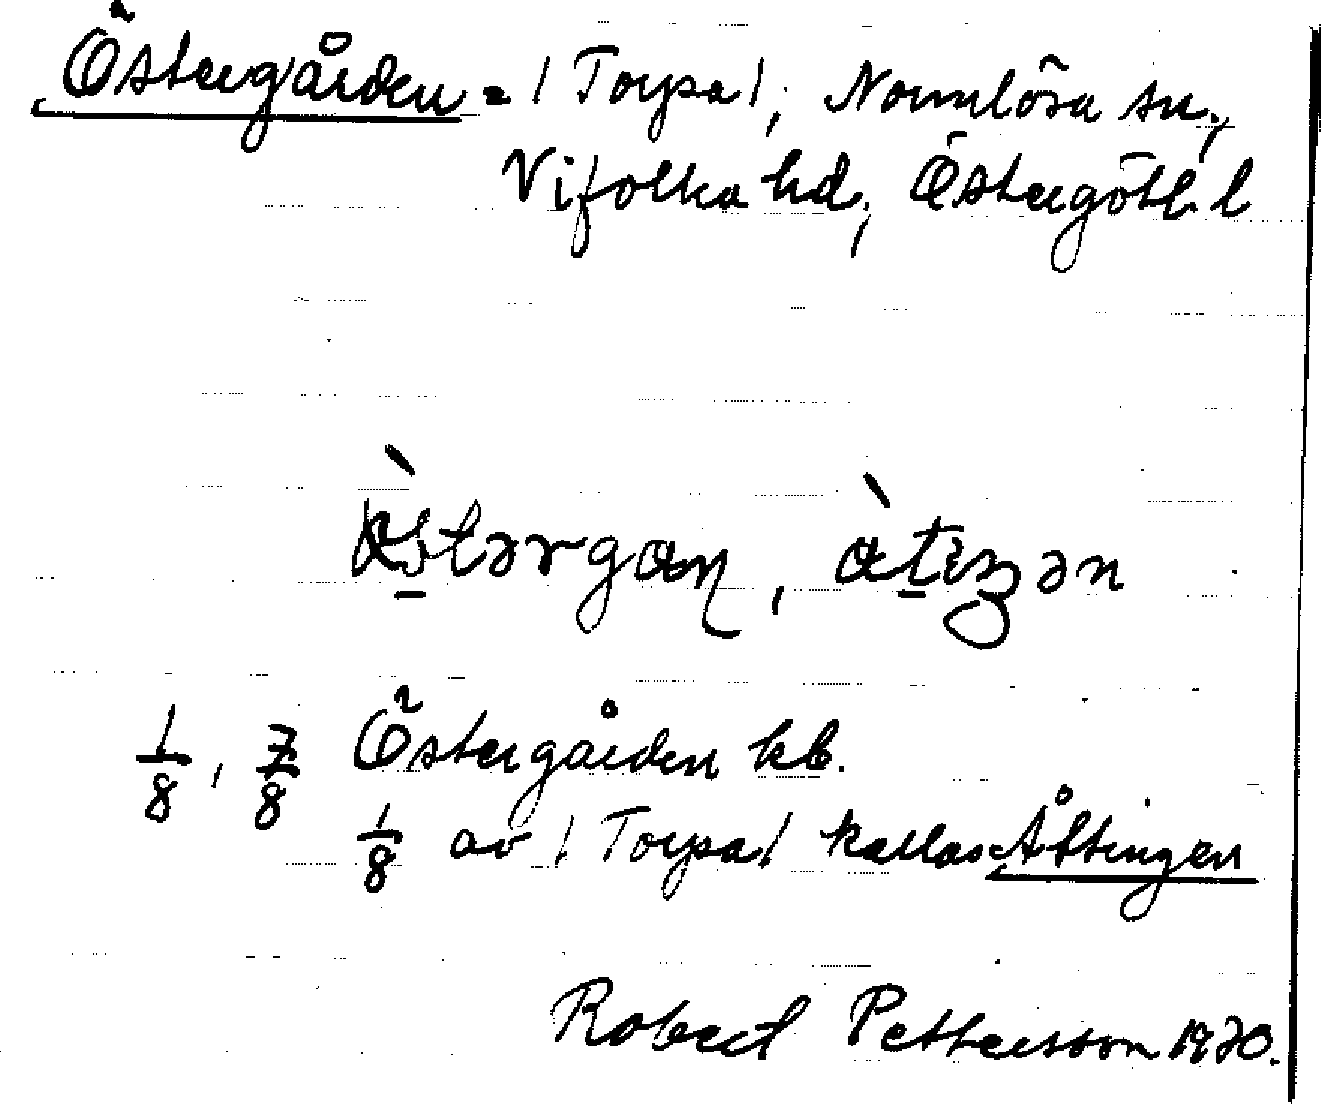 Östergården = / Torpa /, Normlösa sn.,
Vifolka hd., Östergötl. l
1/8, 7/8 Östergården kb.
1/8 av / Torpa / kallas Åttingen
Robert Pettersson 1930.